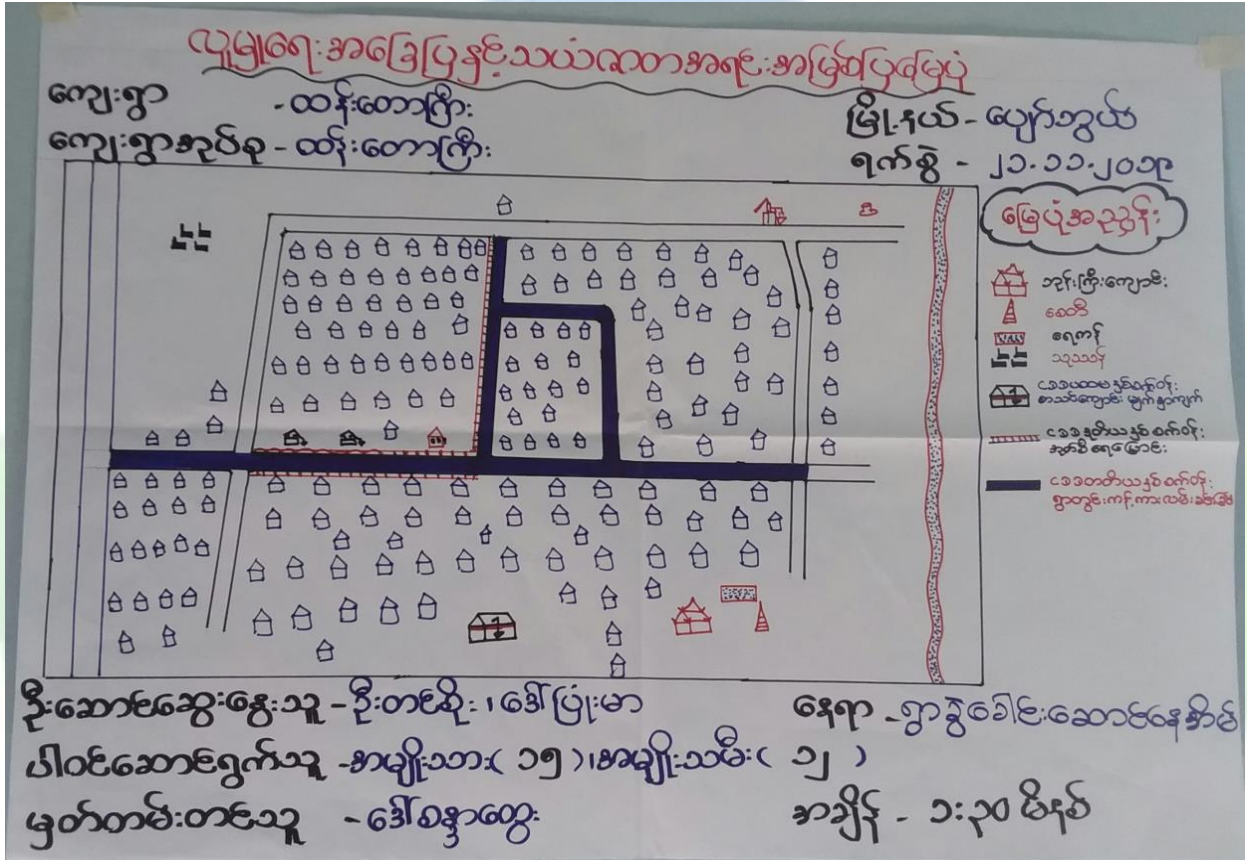 လူမှုရေးအခြေပြနှင့်သယံဇာတအရင်းအမြစ်ပြမြေပုံ
ကျေးရွာ - ထန်းတောကြီး
ကျေးရွာအုပ်စု - ထန်းတောကြီး
မြို့နယ် - ပျော်ဘွယ်
ရက်စွဲ - ၂၁.၁၁.၂၀၁၉
မြေပုံအညွှန်း
ဘုန်းကြီးကျောင်း
စေတီ
ရေကန်
သုသာန်
ငဒဒပထမနှစ်စက်ဝန်း
စာသင်ကျောင်း မျက်နှာကျက်
ငဒဒဒုတိယနှစ်စက်ဝန်း
အုတ်စီရေမြောင်း
ငဒဒတတိယနှစ်စက်ဝန်း
ရွာတွင်းကန့်ကားလမ်းခင်းခြင်း
ဦးဆောင်ဆွေးနွေးသူ - ဦးတင်စိုး ၊ ဒေါ်ပြုံးမာ
ပါဝင်ဆောင်ရွက်သူ - အမျိုးသား( ၁၅ )၊အမျိုးသမီး( ၁၂ )
မှတ်တမ်းတင်သူ - ဒေါ်စန္ဒာထွေး
နေရာ - ရွာနွဲခေါင်းဆောင်နေအိမ်
အချိန် - ၁း၃၀ မိနစ်